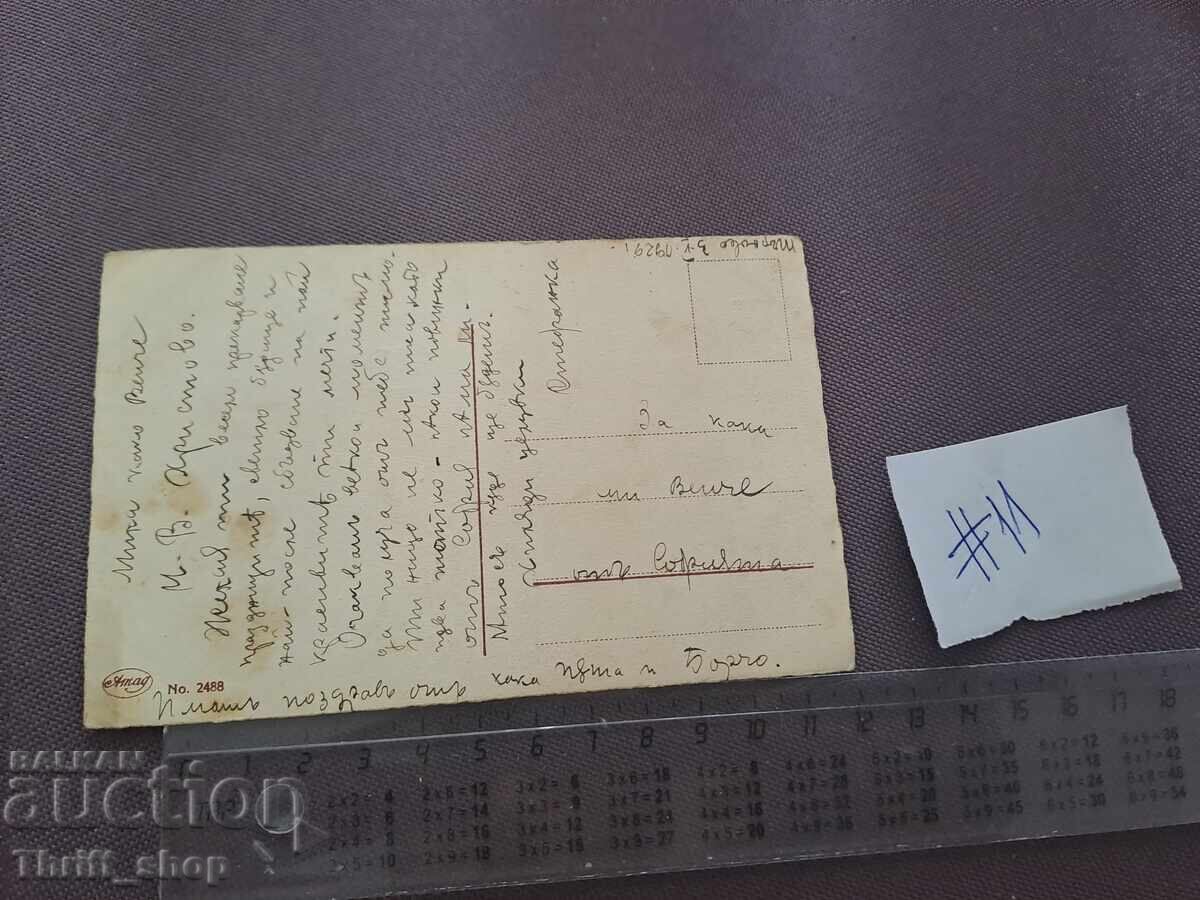 Търново 3.V.1929г.
Мили како Венче
И. В. Христово.
Желая ти весели прекарване
празницитѣ, светло бѫдище и
най-после сбѫдване на най
красивитѣ ти мечти.
Очаквамъ всѣкой моментъ
да получа отъ тебе писмо.
Ти нищо не
два
отъ София нѣма
Много ще бѫдешъ
Хиляди целувки
Стефанка
За кака
ми Венче
отъ Софията
Имашъ поздравъ отъ кака Цвѣта и Борчо.
Amag
No. 2488
#11
0 1 2 3 4 5 6 7 8 9 10 11 12 13 14 15 16 17 18
2x2= 4 2x6=12 3x2= 6 3x6=18 4x2= 8 4x6=24 5x6=30 6x2=12 6x6=36
2x3= 6 2x7=14 3x3= 9 3x7=21 4x3=12 4x7=28 5x3=15 5x7=35 6x3=18 6x7=42
2x4= 8 2x8=16 3x4=12 3x8=24 4x4=16 4x8=32 5x4=20 5x8=40 6x4=24 6x8=48
2x5=10 2x9=18 3x5=15 3x9=27 4x5=20 4x9=36 5x5=25 5x9=45 6x5=30 6x9=54
BALKAN
auction
Thrift_shop